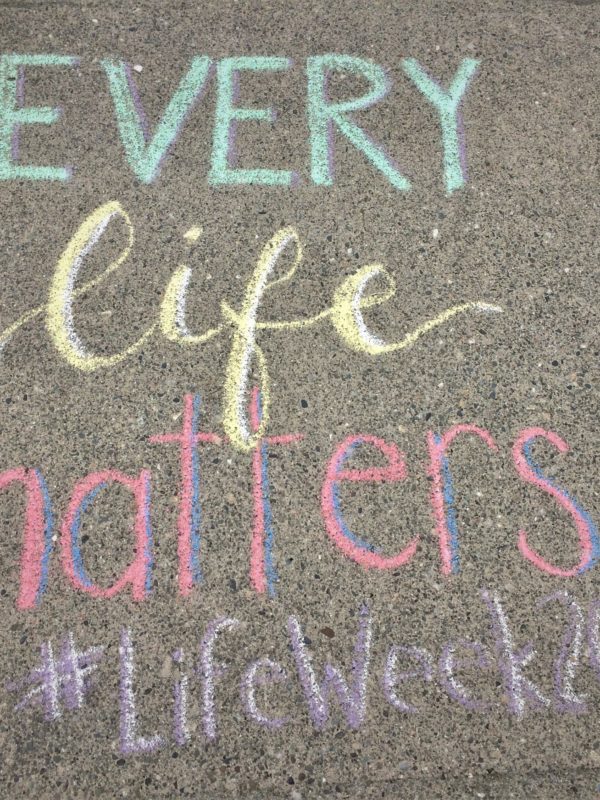 EVERY
life
matters
#LifeWeek